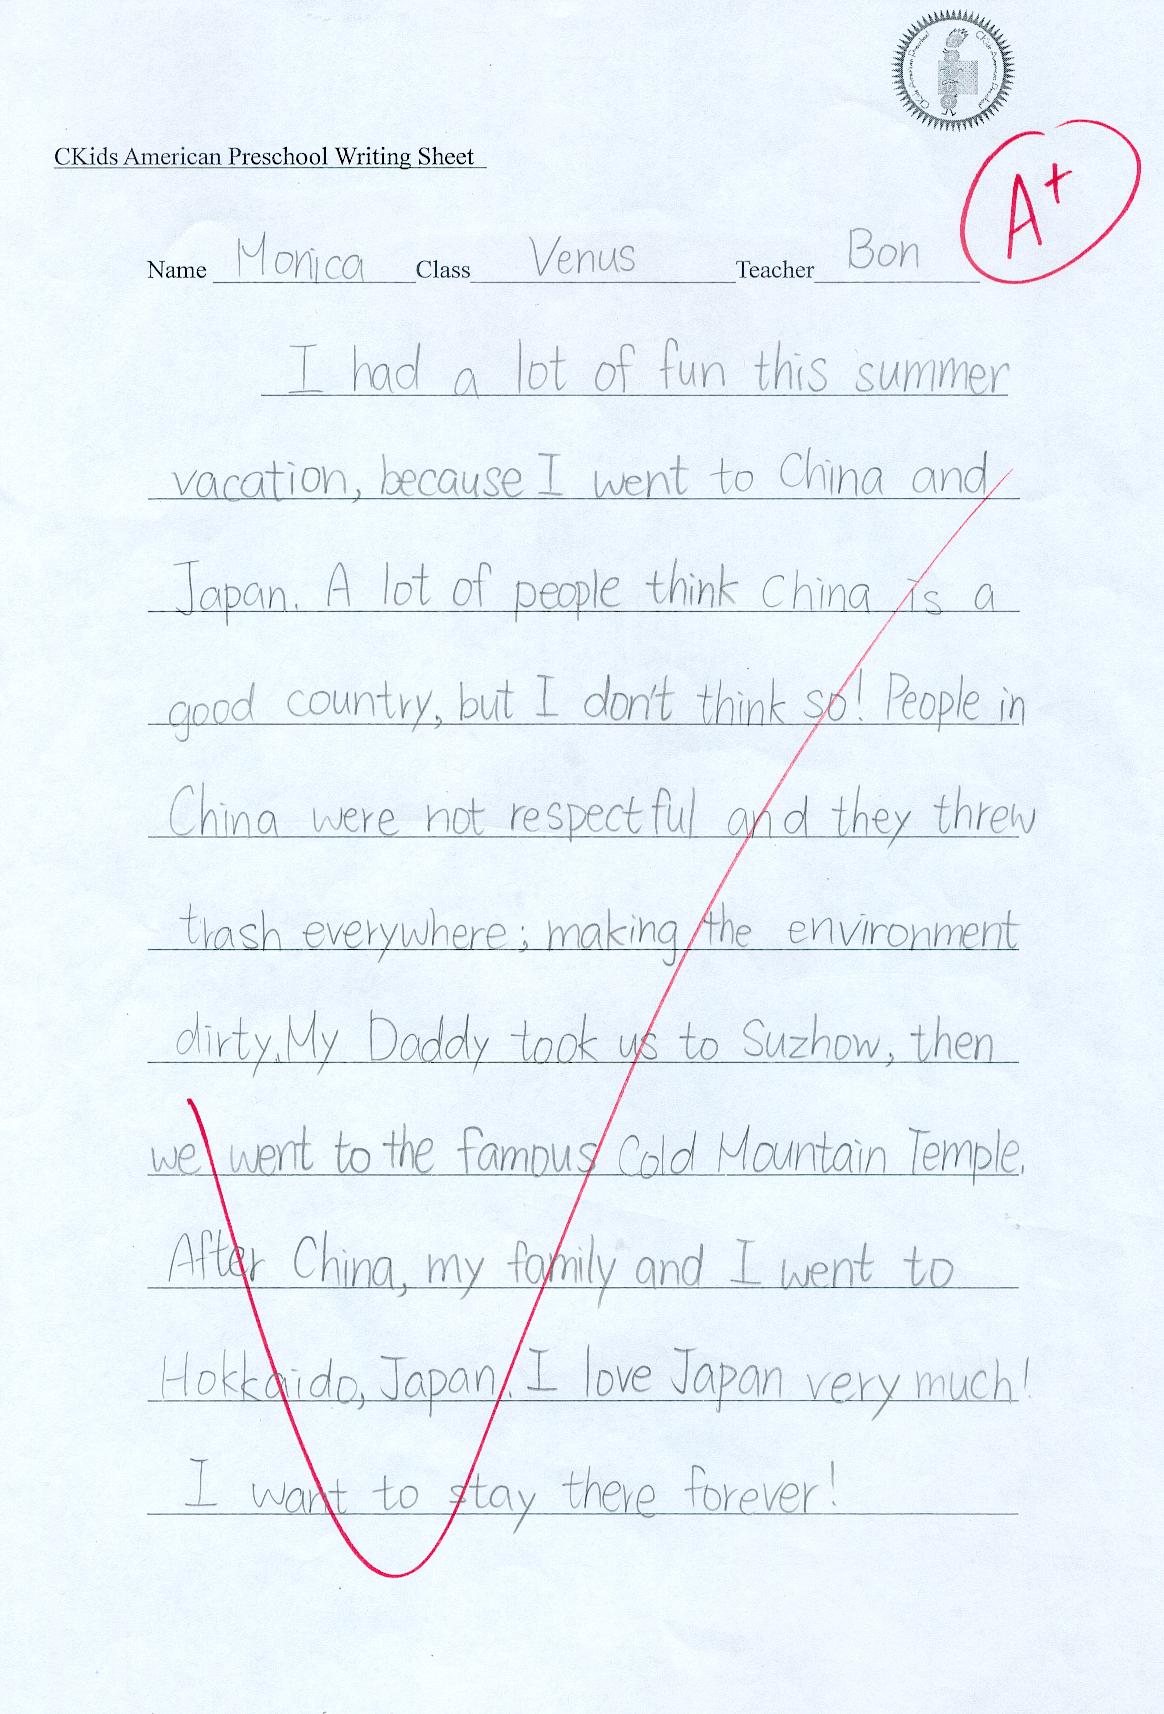 CKids American Preschool Writing Sheet
A+
Name Monica Class Venus Teacher Bon
I had a lot of fun this summer
vacation, because I went to China and
Japan. A lot of people think China is a
good country, but I don't think so! People in
China were not respectful and they threw
trash everywhere; making the environment
dirty. My Daddy took us to Suzhow, then
we went to the famous Cold Mountain Temple.
After China, my family and I went to
Hokkaido, Japan. I love Japan very much!
I want to stay there forever!